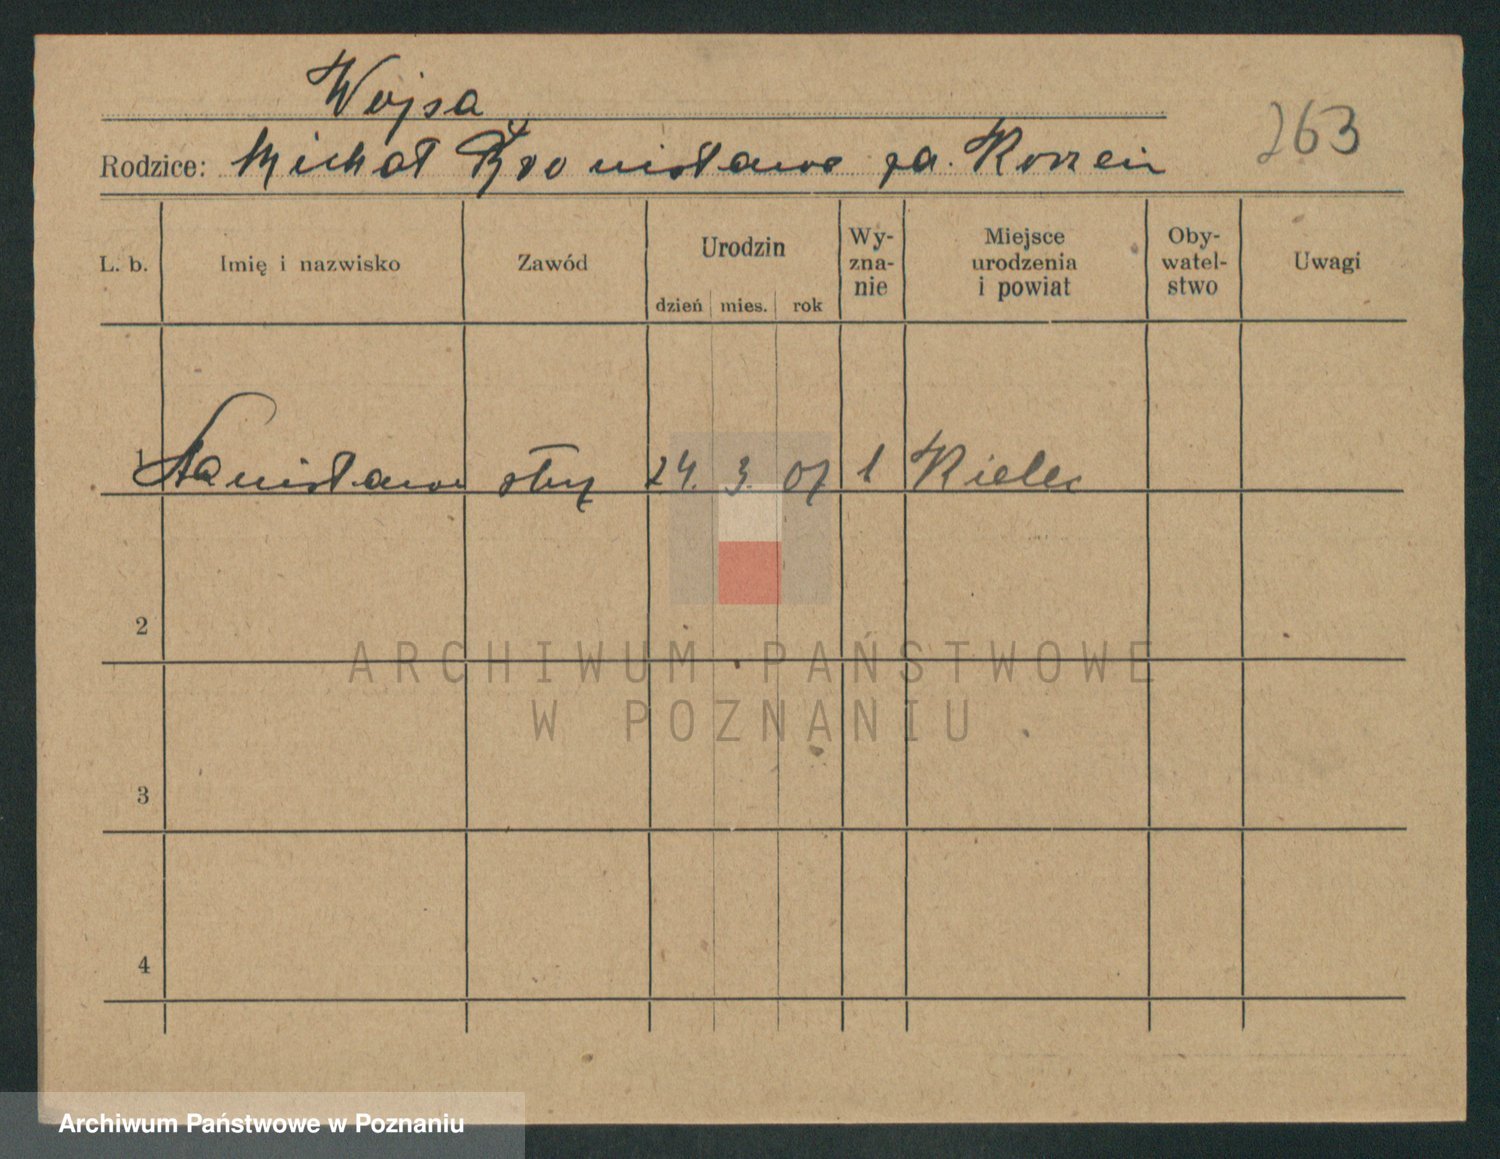 Wojsa
263
Rodzice: Michał Bronisława za.
L. b. Imię i nazwisko Zawód Urodzin dzień mies. rok Wy-zna-nie Miejsce urodzenia i powiat Oby-watel-stwo Uwagi
1 Stanisława 24. 3. 07 Kielce
2
ARCHIWUM PAŃSTWOWE
W POZNANIU
3
4
Archiwum Państwowe w Poznaniu